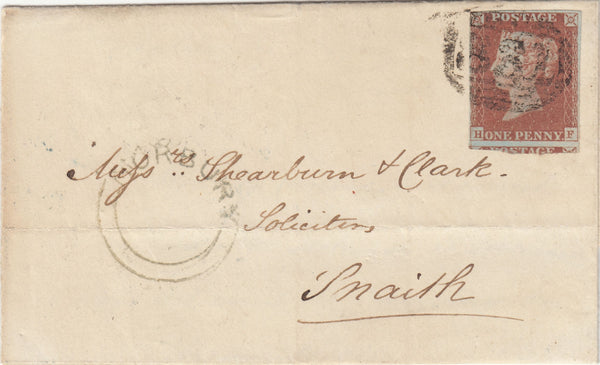 POSTAGE
H ONE PENNY F
HORBURY
Mess.rs Shearburn & Clark.
Soliciters
Snaith